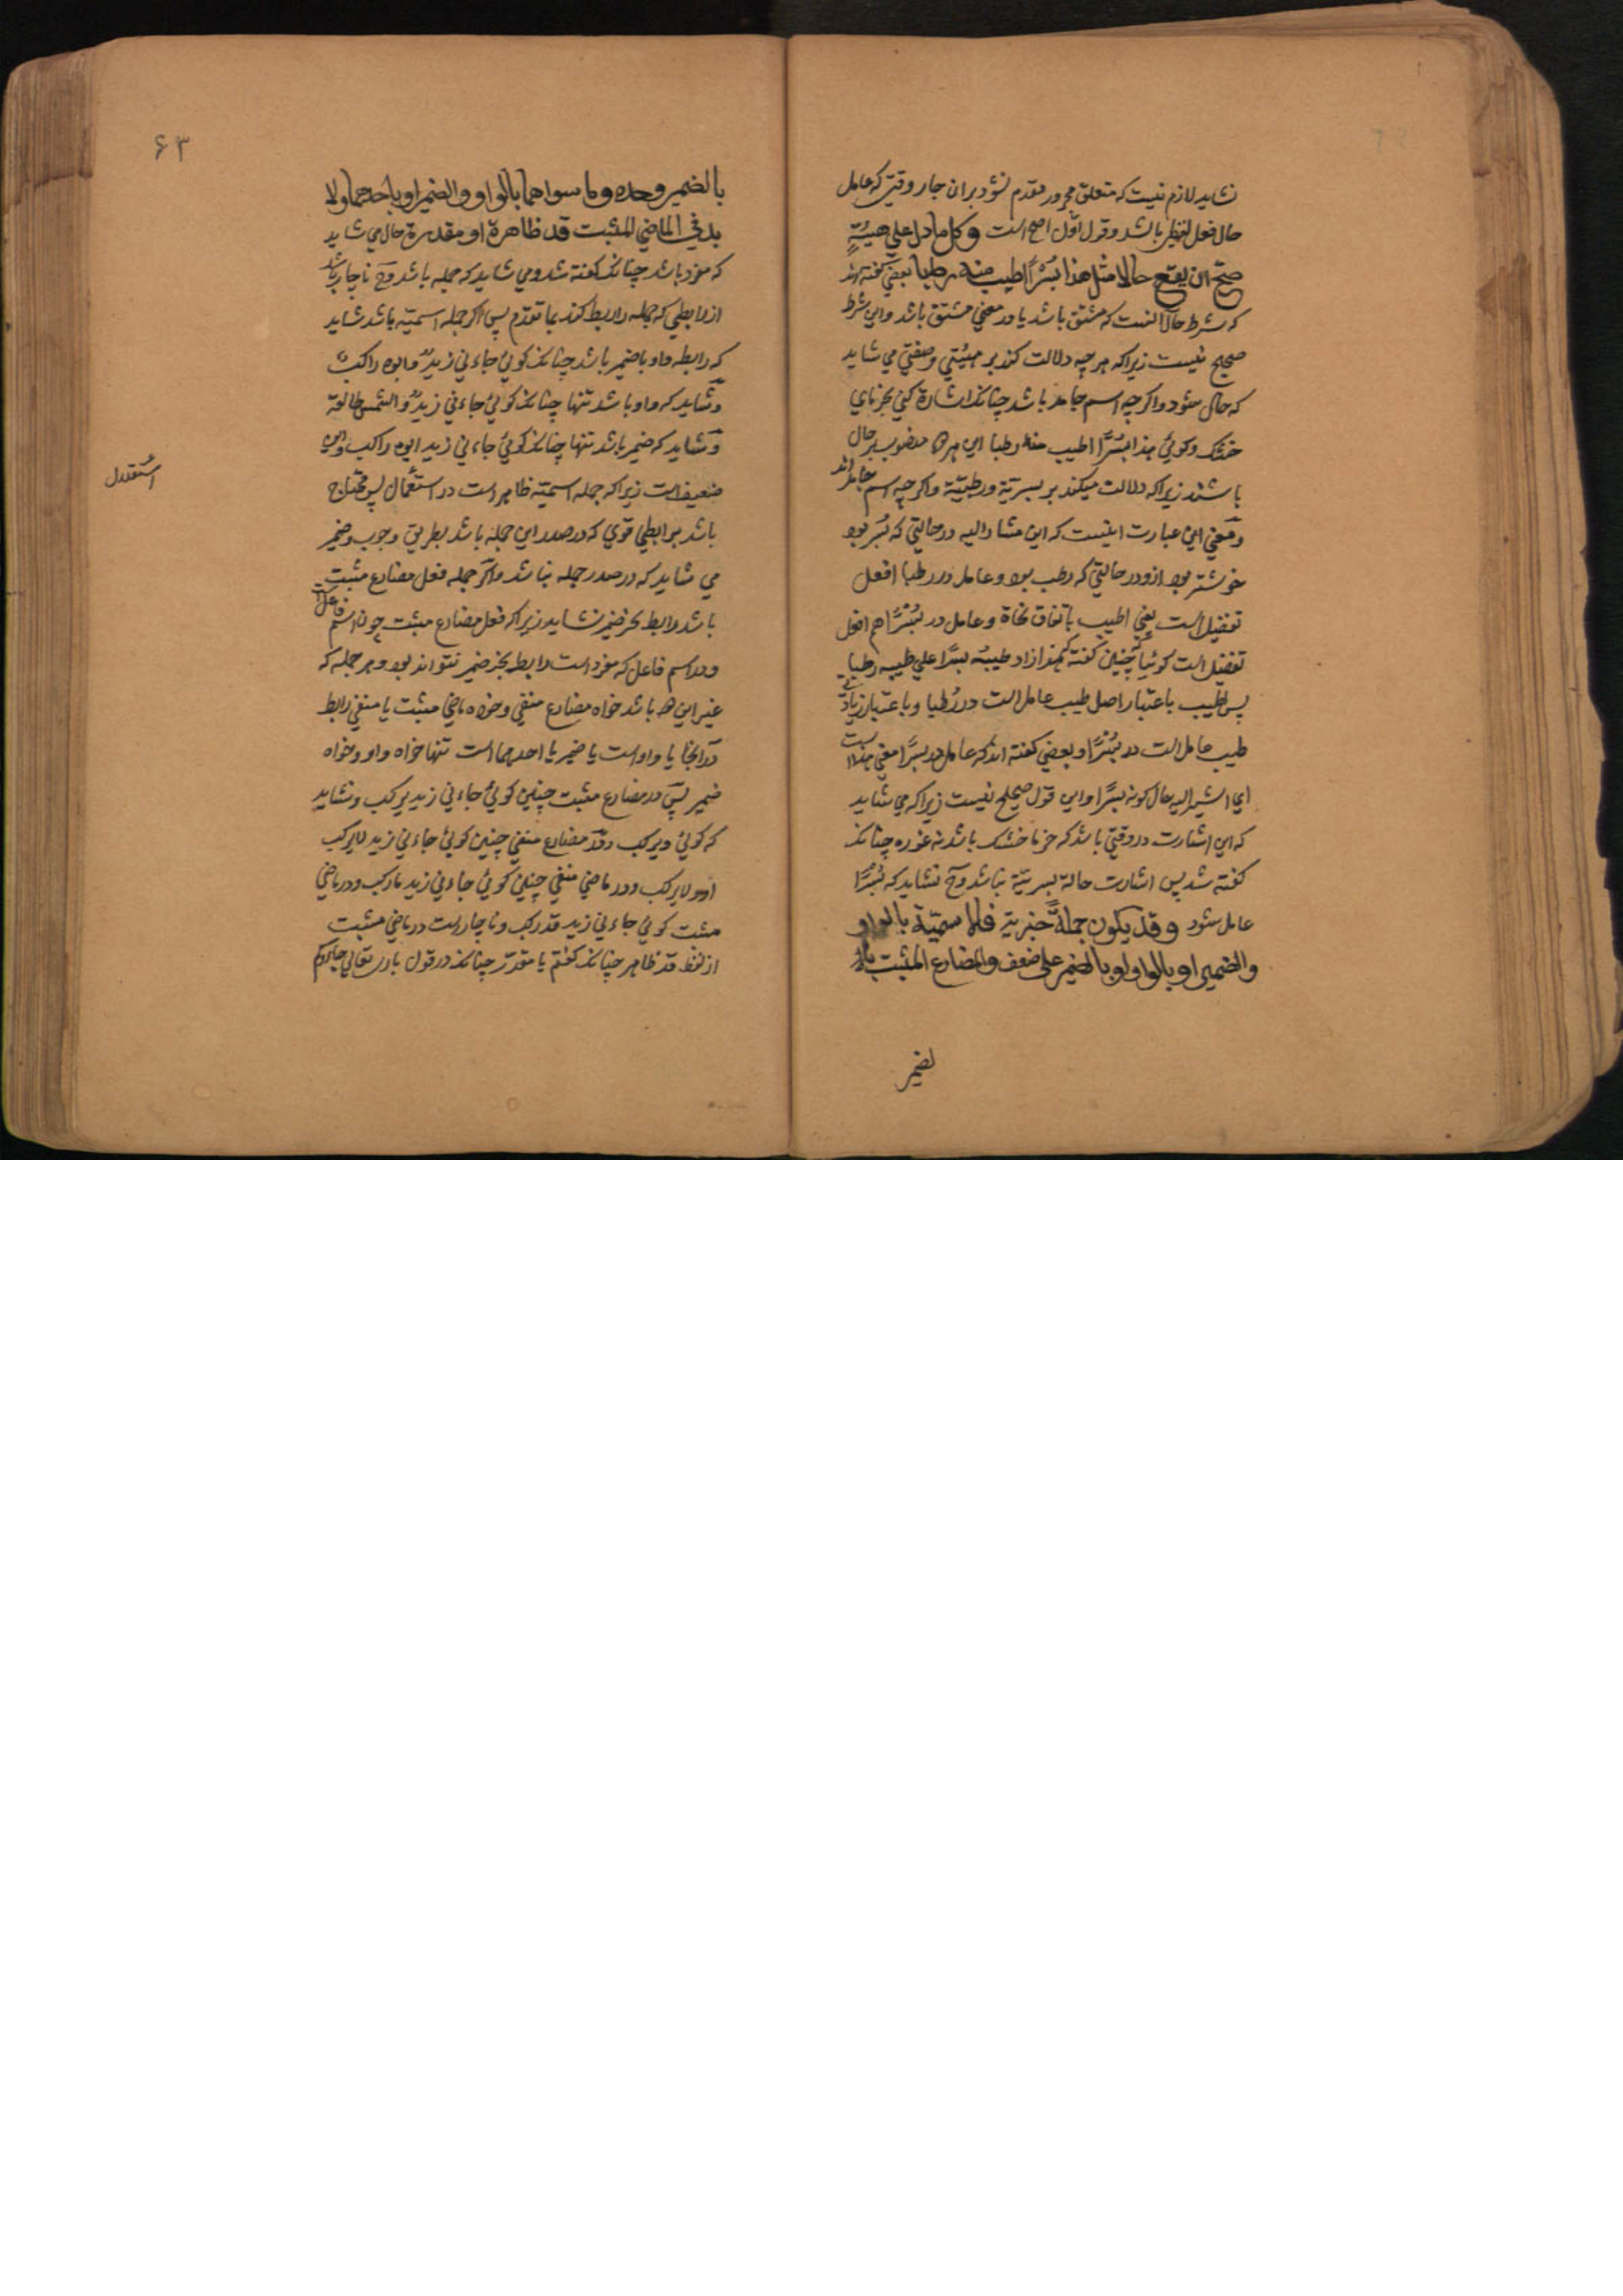 نشاید لازم نیست که متعلق مجرور مقدم نشود بران جار وقتی که عامل
حال فعل لفظی باشد و قول اول اصح است وکل ما دل علی هیئةٍ
صحّ ان یقع حالا مثل هذا بُسْرًا اطیب منه رطبا بعضی کفته اند
که شرط حال آنست که مشتق باشد یا در معنی مشتق باشد و این شرط
صحیح نیست زیراکه هر چه دلالت کند بر هیئتی و صفتی می شاید
که حال شود واکرچه اسم جامد باشد چنانکه اشارة کنی بخرمای
خشک و کوئی هذا بُسْرًا اطیب منه رطبا این هر دو منصوب بر حال
باشند زیراکه دلالت میکند بر بسریّة و رطبیّة واکرچه اسم جامد اند
و معنی این عبارت اینست که این مشار الیه در حالتی که بُسر بود
خوشتر بود ازو در حالتی که رطب بود و عامل در رطبا افعل
تفضیل است یعنی اطیب باتفاق نحاة و عامل در بُسْرًا هم افعل
تفضیل است کوئیا چنین کفته که هذا زاد طیبه بسرًا علی طیبه رطبا
پس اطیب باعتبار اصل طیب عامل است در رُطبا و باعتبار زیادتی
طیب عامل است در بُسْرًا و بعضی کفته اند که عامل در بسرًا معنی هذا است
ای اشیر الیه حال کونه بسرًا و این قول صحیح نیست زیراکه می شاید
که این اشارت در وقتی باشد که خرما خشک باشد نه غوره چنانکه
کفته شد پس اشارت حالة بسریّة نباشد وح نشاید که بُسْرًا
عامل شود وقد یکون جملةً خبریة فالاسمیّة بالواو
والضمیر او بالواو او بالضمیر علی ضعف والمضارع المثبت
لضمیر
۶۳
بالضمیر وحده وما سواهما بالواو والضمیر او باحدهما ولا
بد فی الماضی المثبت قد ظاهرة او مقدرة حال می شاید
که مفرد باشد چنانکه کفته شد و می شاید که جمله باشد وح ناچار باشد
از رابطی که جمله را ربط کند بما تقدم پس اکر جمله اسمیّه باشد شاید
که رابطه واو با ضمیر باشد چنانکه کوئی جاءنی زیدٌ وابوه راکبٌ
و شاید که واو باشد تنها چنانکه کوئی جاءنی زیدٌ والشمس طالعة
و شاید که ضمیر باشد تنها چنانکه کوئی جاءنی زید ابوه راکب و این
ضعیف است زیراکه جمله اسمیّه ظاهر است در استقلال پس محتاج
استقلال
باشد برابطی قوی که در صدر این جمله باشد بطریق وجوب و ضمیر
می شاید که در صدر جمله نباشد واکر جمله فعل مضارع مثبت
باشد رابط بجز ضمیر نشاید زیراکه فعل مضارع مثبت چون اسم فاعل است
و در اسم فاعل که مفرد است رابط بجز ضمیر نتواند بود و هر جمله که
غیر این دو باشد خواه مضارع منفی و خواه ماضی مثبت یا منفی رابط
در آنجا یا واو است یا ضمیر یا احدهما است تنها خواه واو و خواه
ضمیر پس در مضارع مثبت چنین کوئی جاءنی زید یرکب و نشاید
که کوئی ویرکب و در مضارع منفی چنین کوئی جاءنی زید لایرکب
او ولایرکب و در ماضی منفی چنین کوئی جاءنی زید مارکب و در ماضی
مثبت کوئی جاءنی زید قد رکب و ناچار است در ماضی مثبت
از لفظ قد ظاهر چنانکه کفتم یا مقدر چنانکه در قول باری تعالی جاؤکم